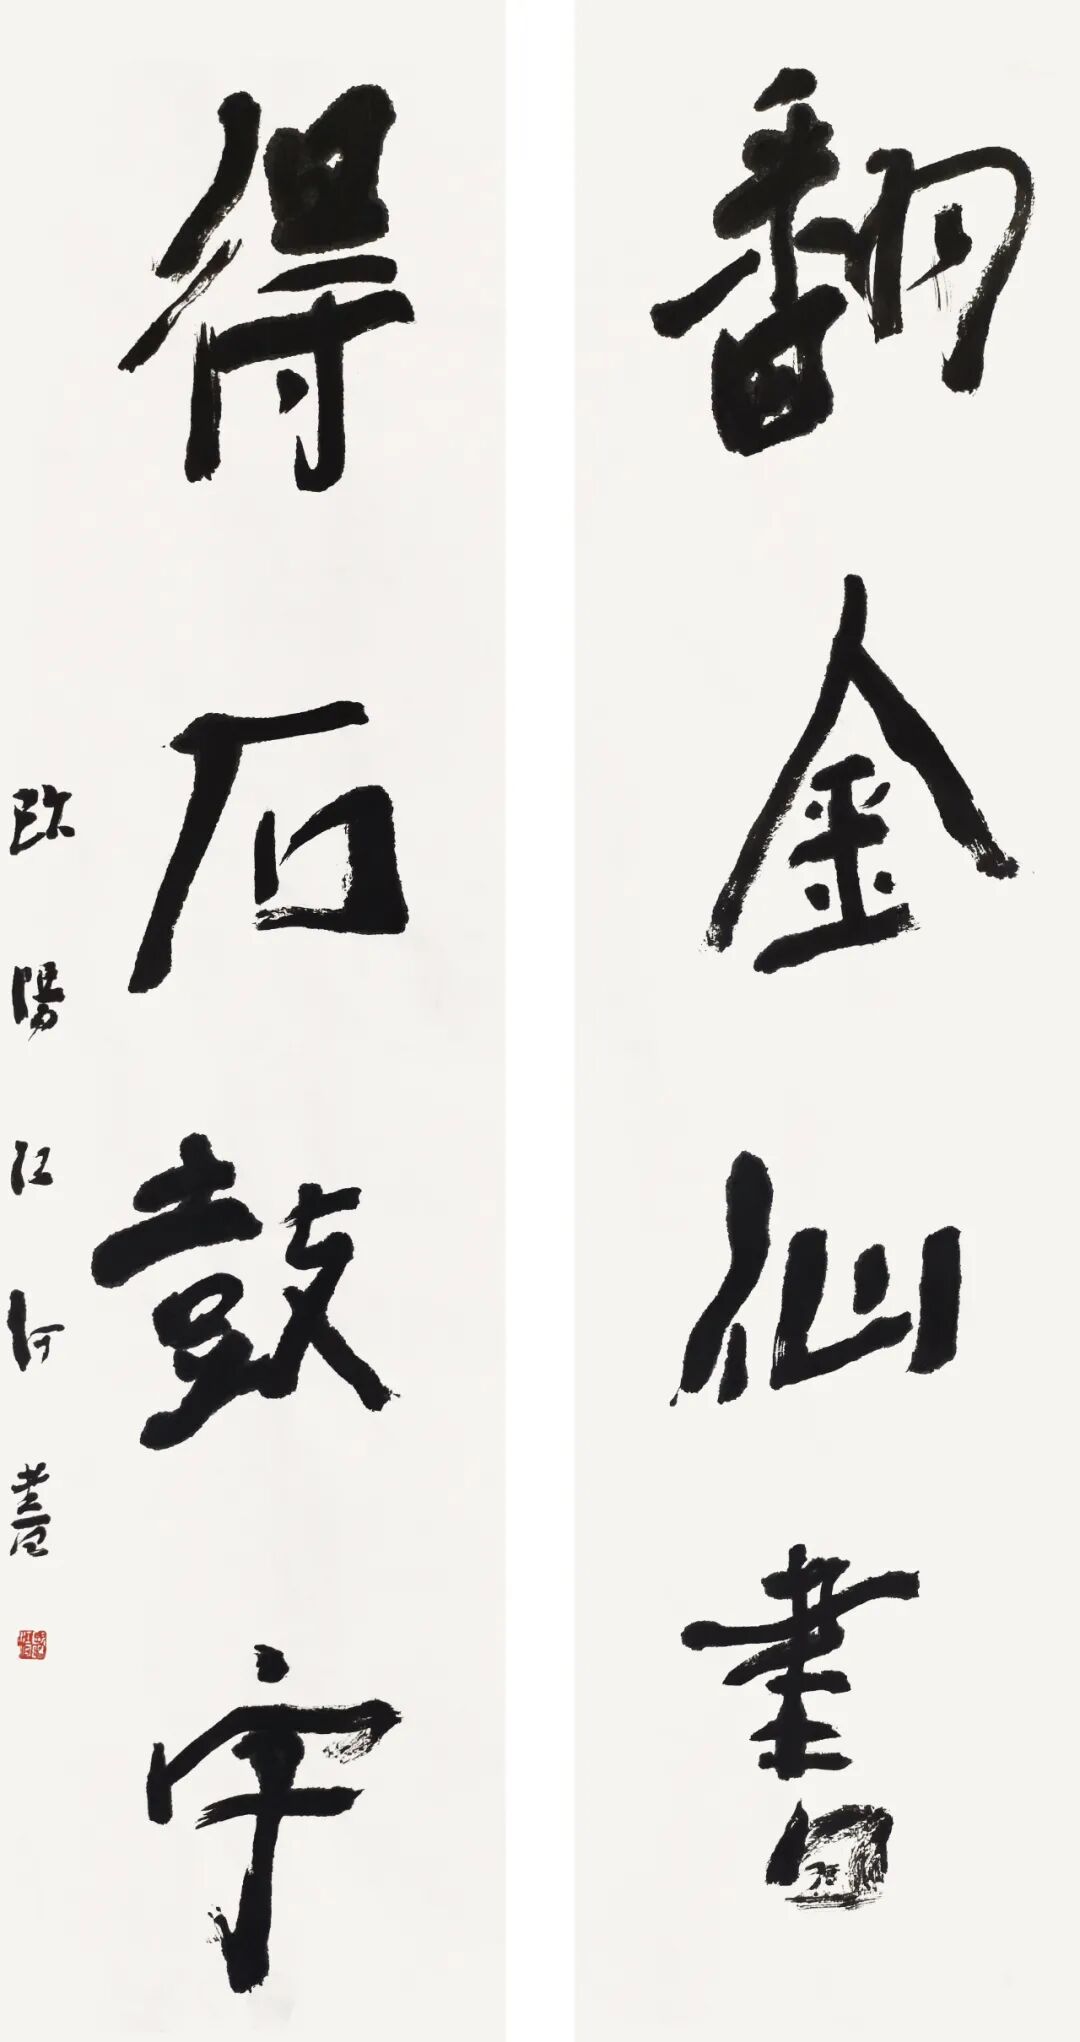 翻金仙書
得石鼓字
欧陽江河書